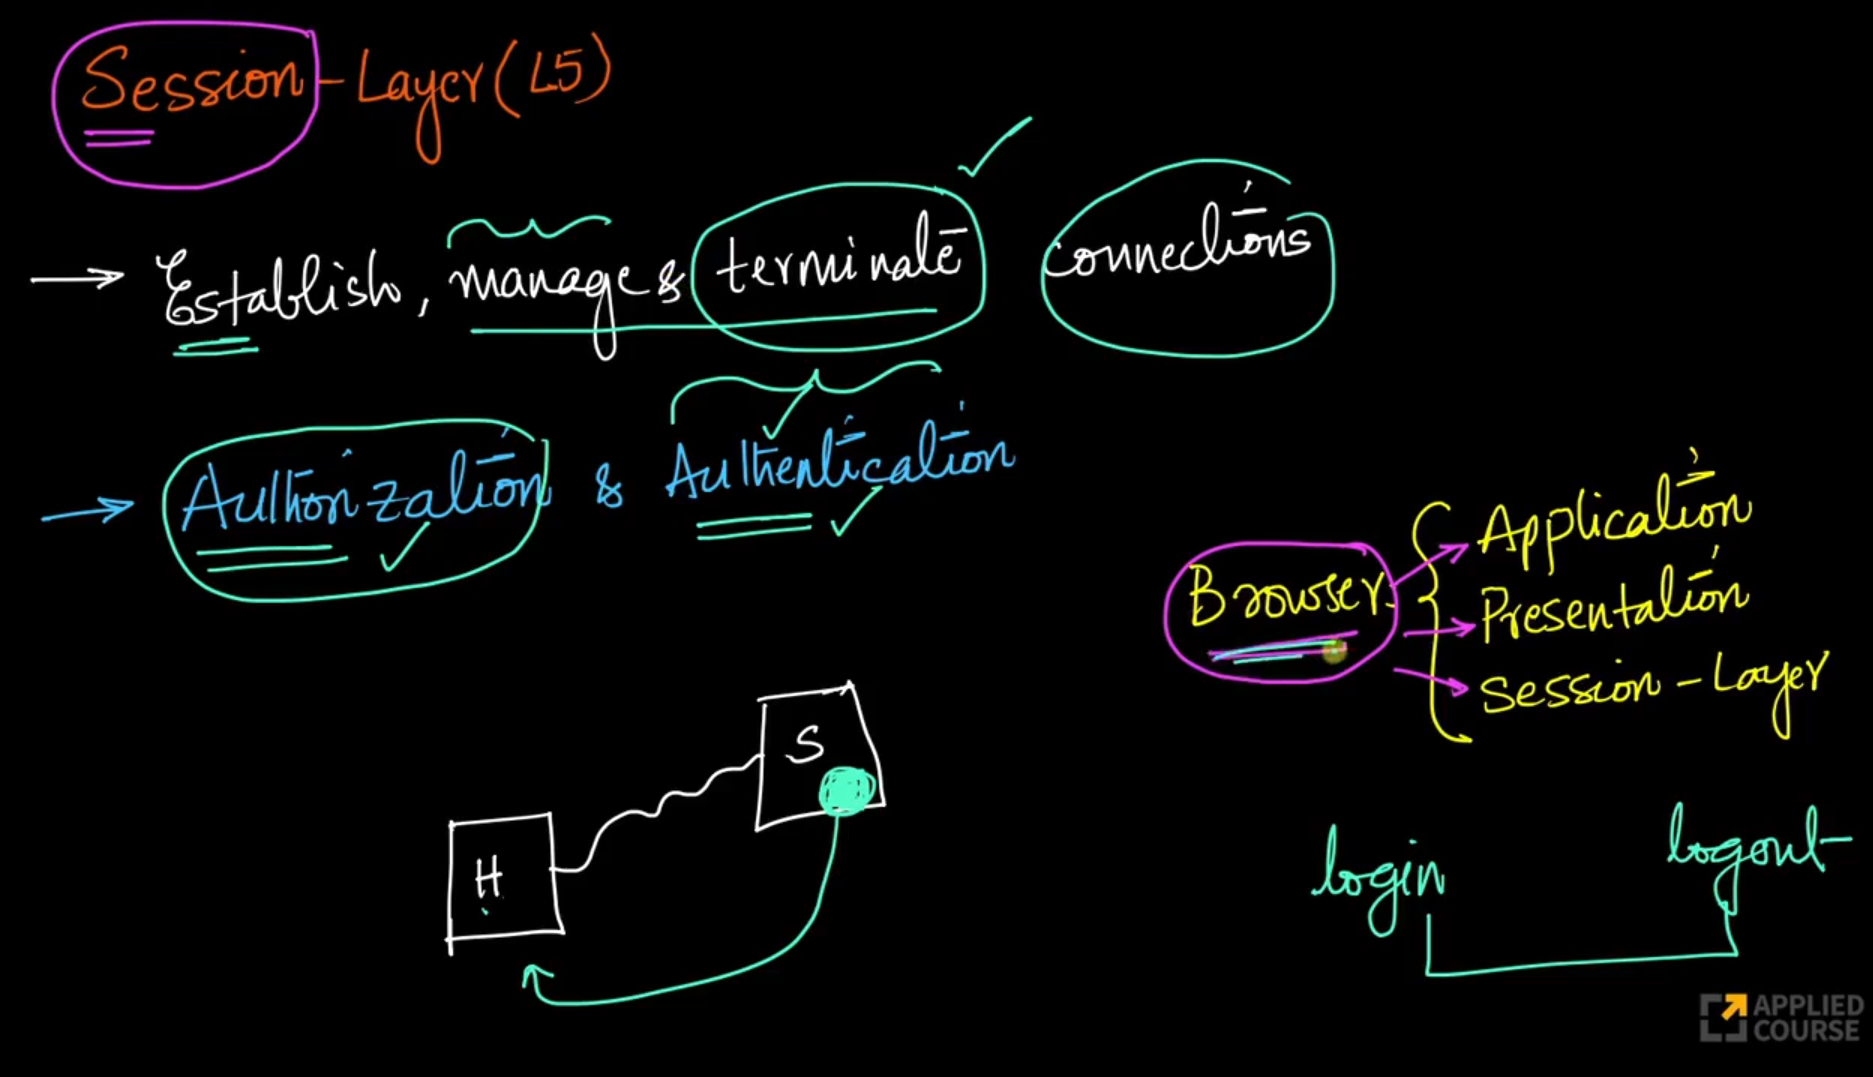 Session-Layer (L5)
→ Establish, manage & terminate connections
→ Authorization & Authentication
Browser
Application
Presentation
Session-Layer
S
H
login
logout
APPLIED
COURSE